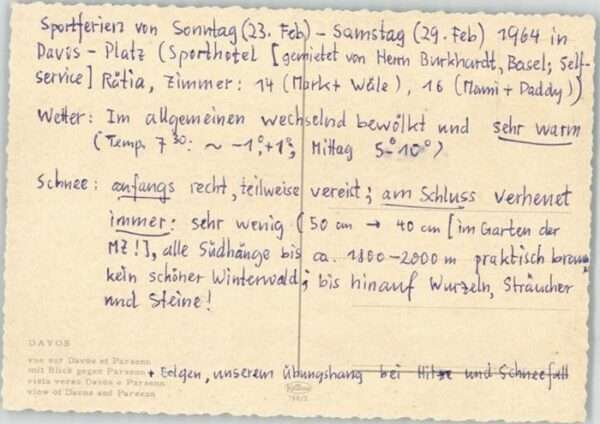 Sportferien von Sonntag (23. Feb) - Samstag (29. Feb) 1964 in
Davos - Platz (Sporthotel [gemietet von Herrn Burkhardt, Basel; Self-
service] Rätia, Zimmer: 14 (Mark + Wäle), 16 (Mami + Daddy))
Wetter: Im allgemeinen wechselnd bewölkt und sehr warm
(Temp. 7³⁰: ~ -1°, +1°, Mittag 5°-10°)
Schnee: anfangs recht, teilweise vereist; am Schluss
immer: sehr wenig (50 cm → 40 cm [im Garten der
MZ!], alle Südhänge bis ca. 1800-2000 m praktisch
kein schöner Winterwald; bis hinauf Wurzeln, Sträucher
und Steine!
DAVOS
vue sur Davos et Parsenn
mit Blick gegen Parsenn
vista verso Davos e Parsenn
view of Davos and Parsenn
+ Folgen, unserem Übungshang bei Hitze und Schneefall